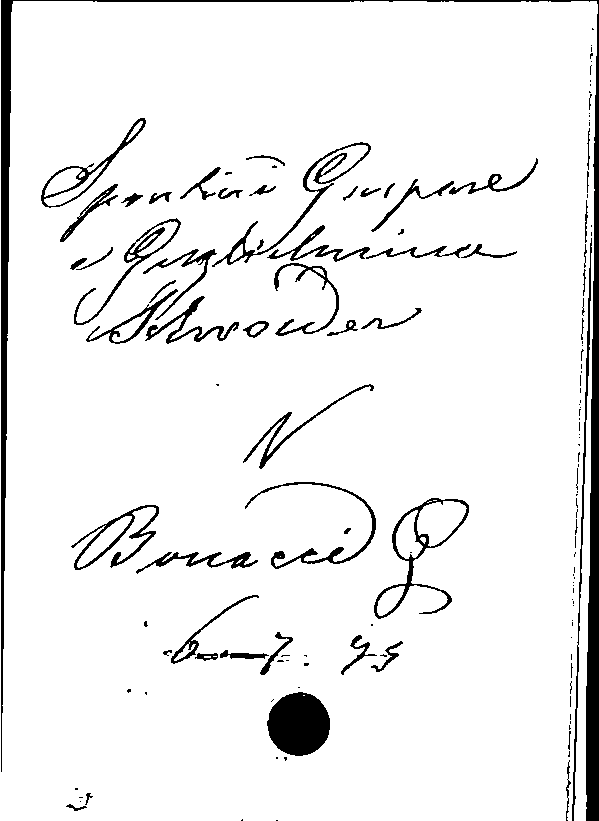 Spontini Gaspare
e Guglielmina
Schroeder
N
Bonacci G
6-7. 95